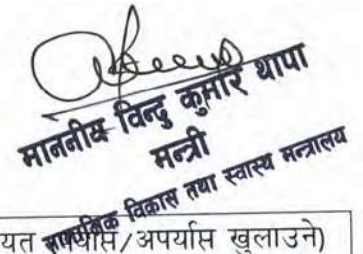 माननीय विन्दु कुमार थापा
मन्त्री
सामाजिक विकास तथा स्वास्थ्य मन्त्रालय
यत पर्याप्त/अपर्याप्त खुलाउने)